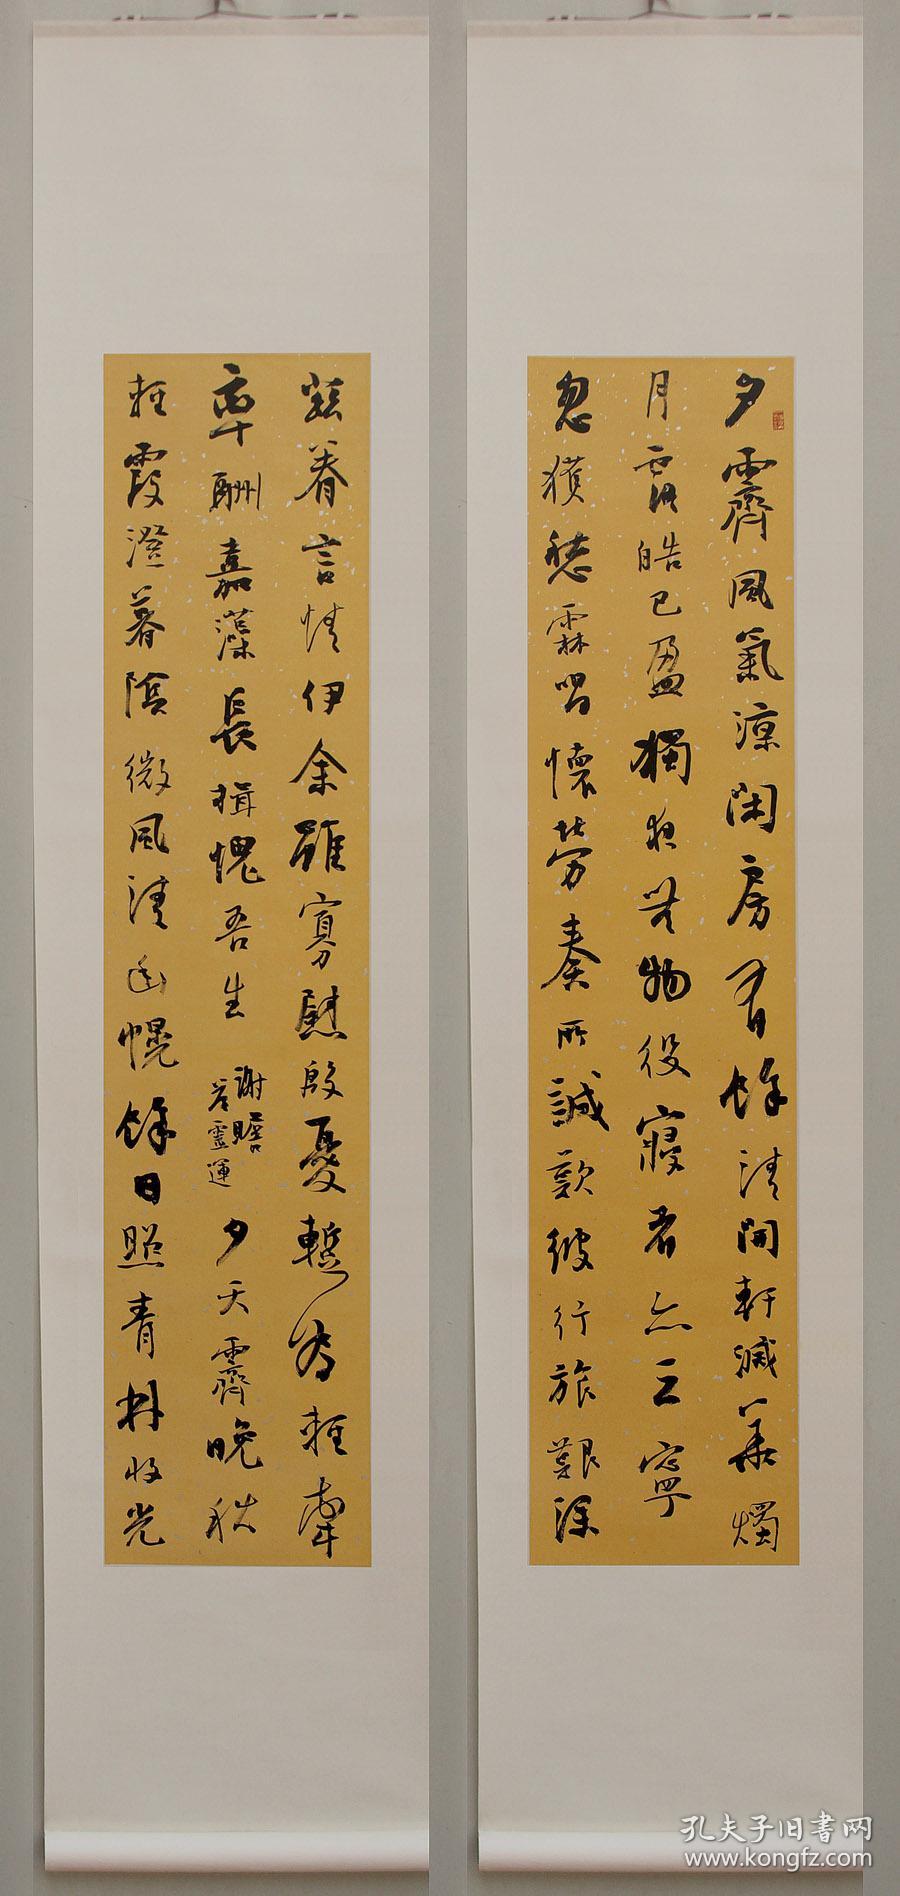 夕霽風氣涼閑房有餘清開軒滅華燭
月露皓已盈獨夜無物役寢者亦云寧
忽獲愁霖唱懷勞奏所誠歎彼行旅艱深
茲眷言情伊余雖寡慰殷憂暫為輕牽
率酬嘉藻長揖愧吾生
謝瞻
答靈運
夕天霽晚秋
輕霞澄暮陰微風清幽幌餘日照青林收光
孔夫子旧书网
www.kongfz.com